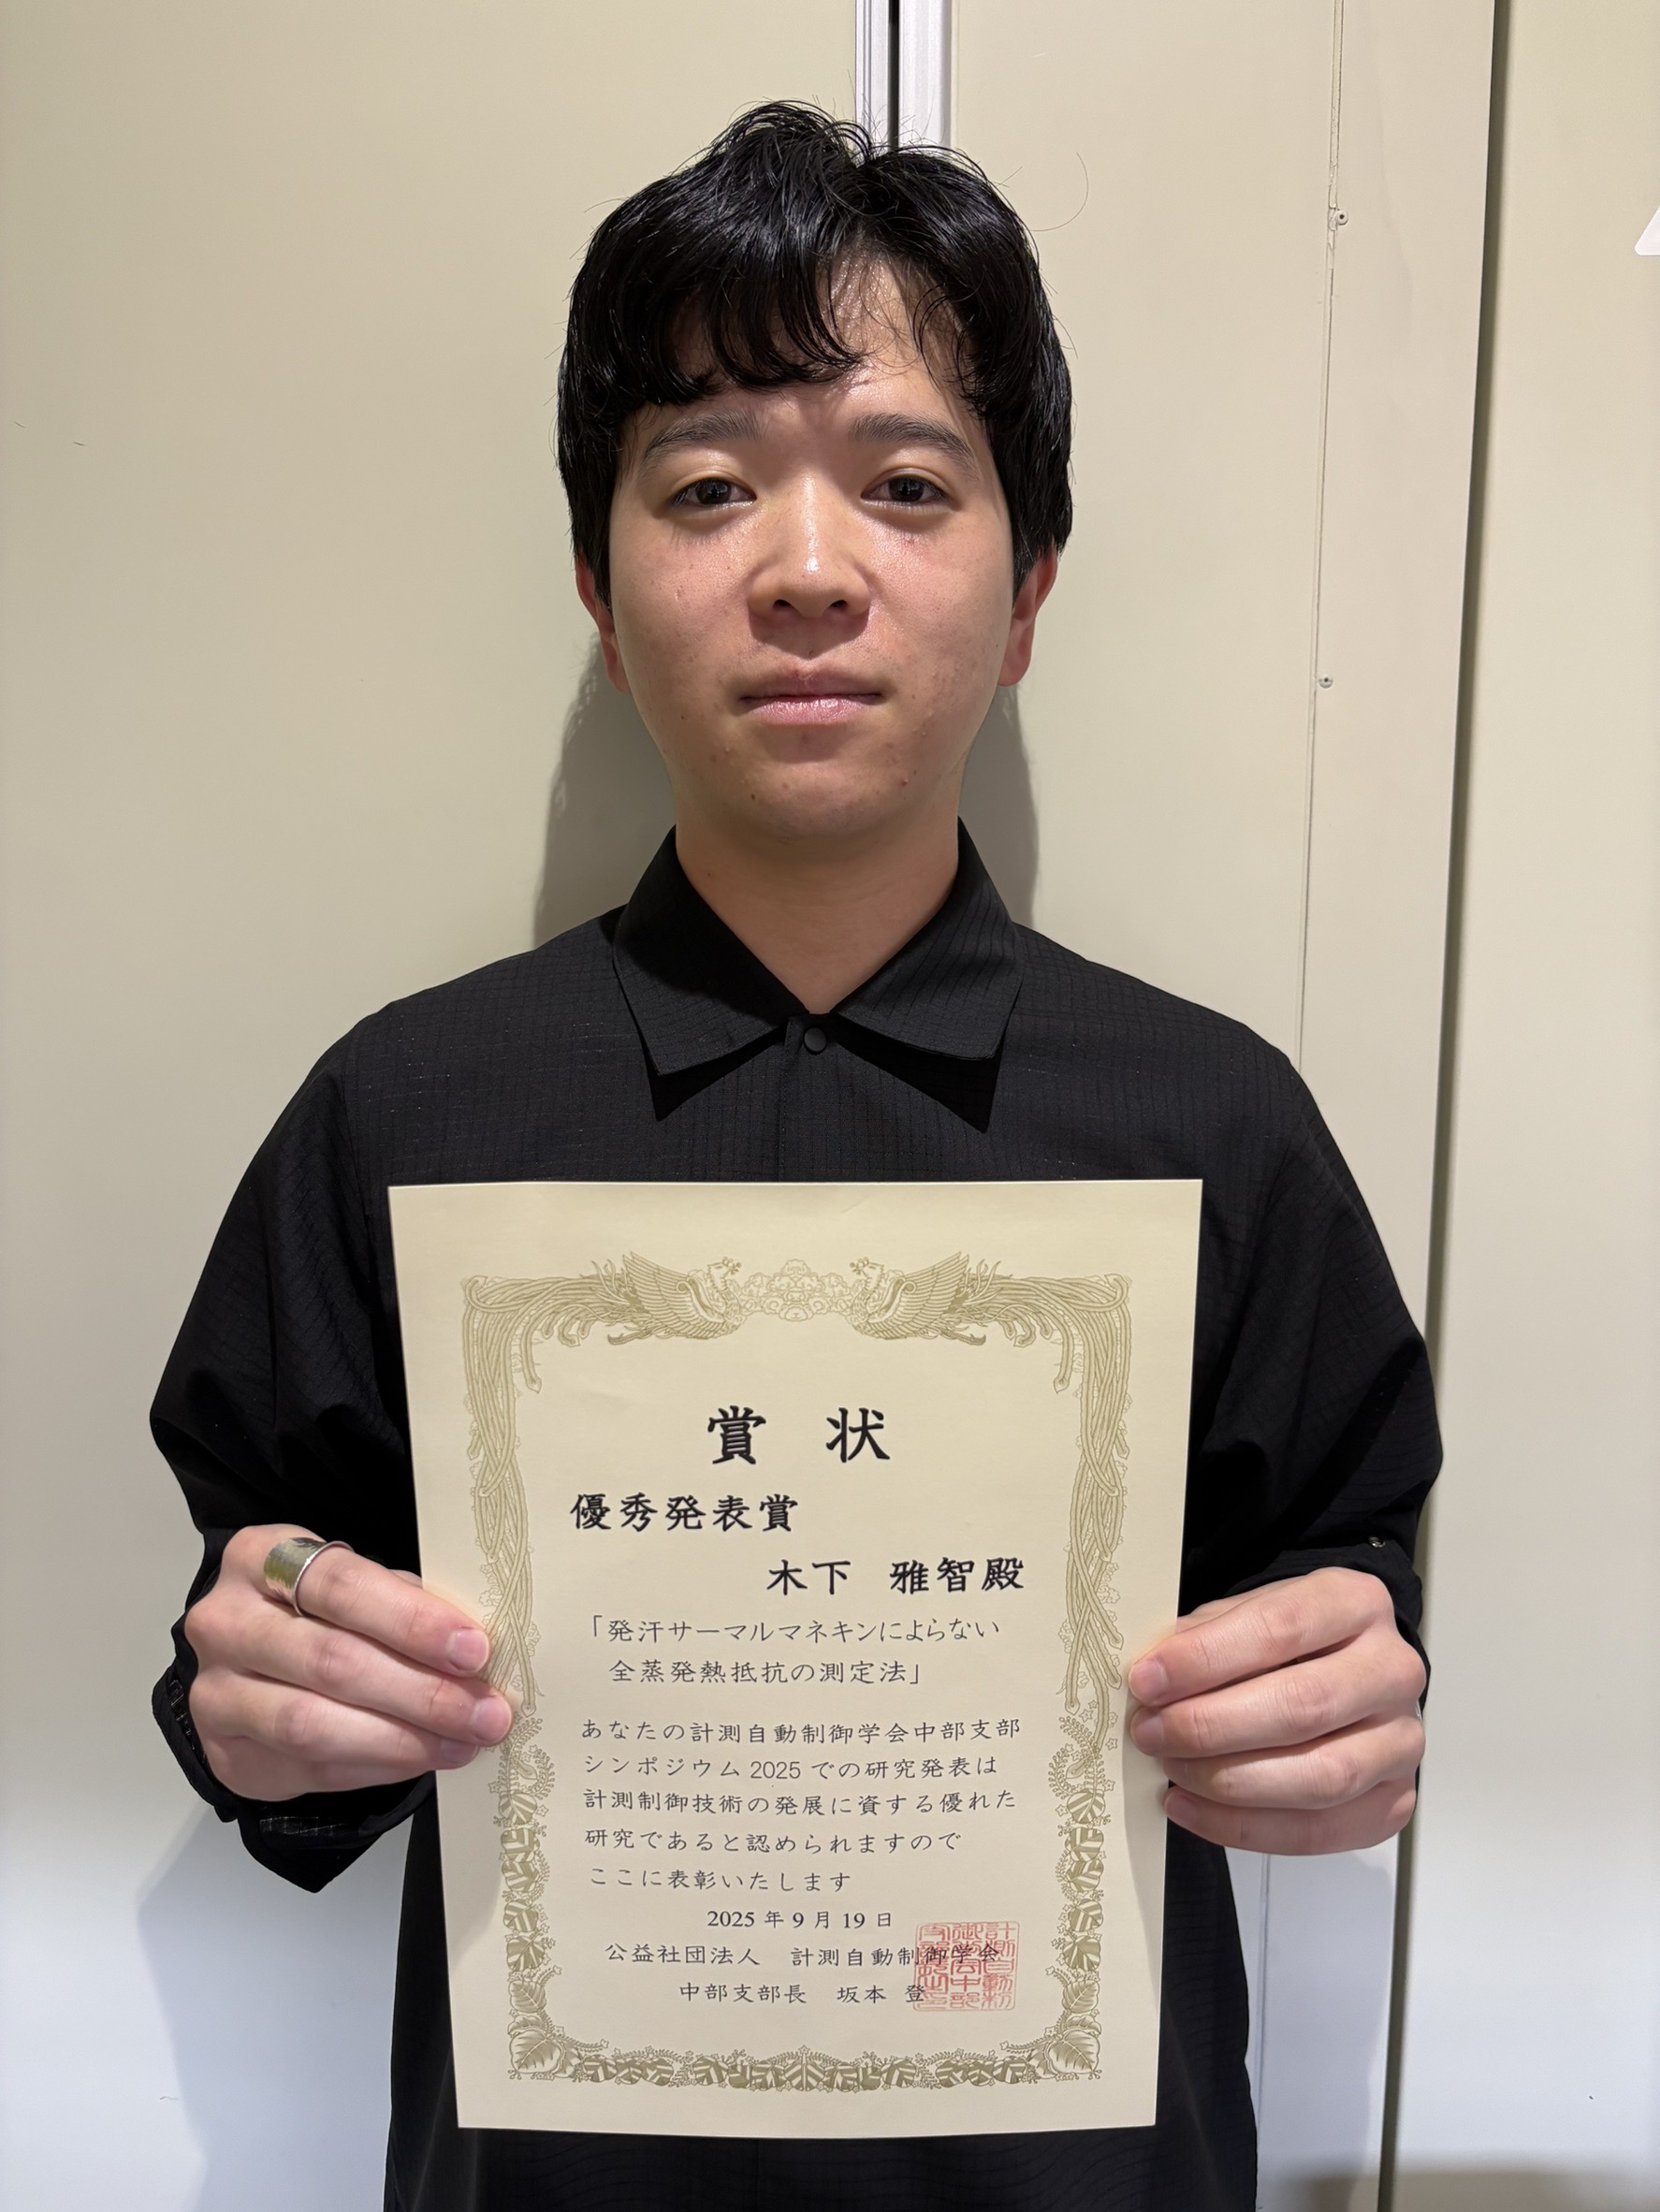 賞 状
優秀発表賞
木下 雅智殿
「発汗サーマルマネキンによらない
全蒸発熱抵抗の測定法」
あなたの計測自動制御学会中部支部
シンポジウム 2025 での研究発表は
計測制御技術の発展に資する優れた
研究であると認められますので
ここに表彰いたします
2025 年 9 月 19 日
公益社団法人 計測自動制御学会
中部支部長 坂本 登